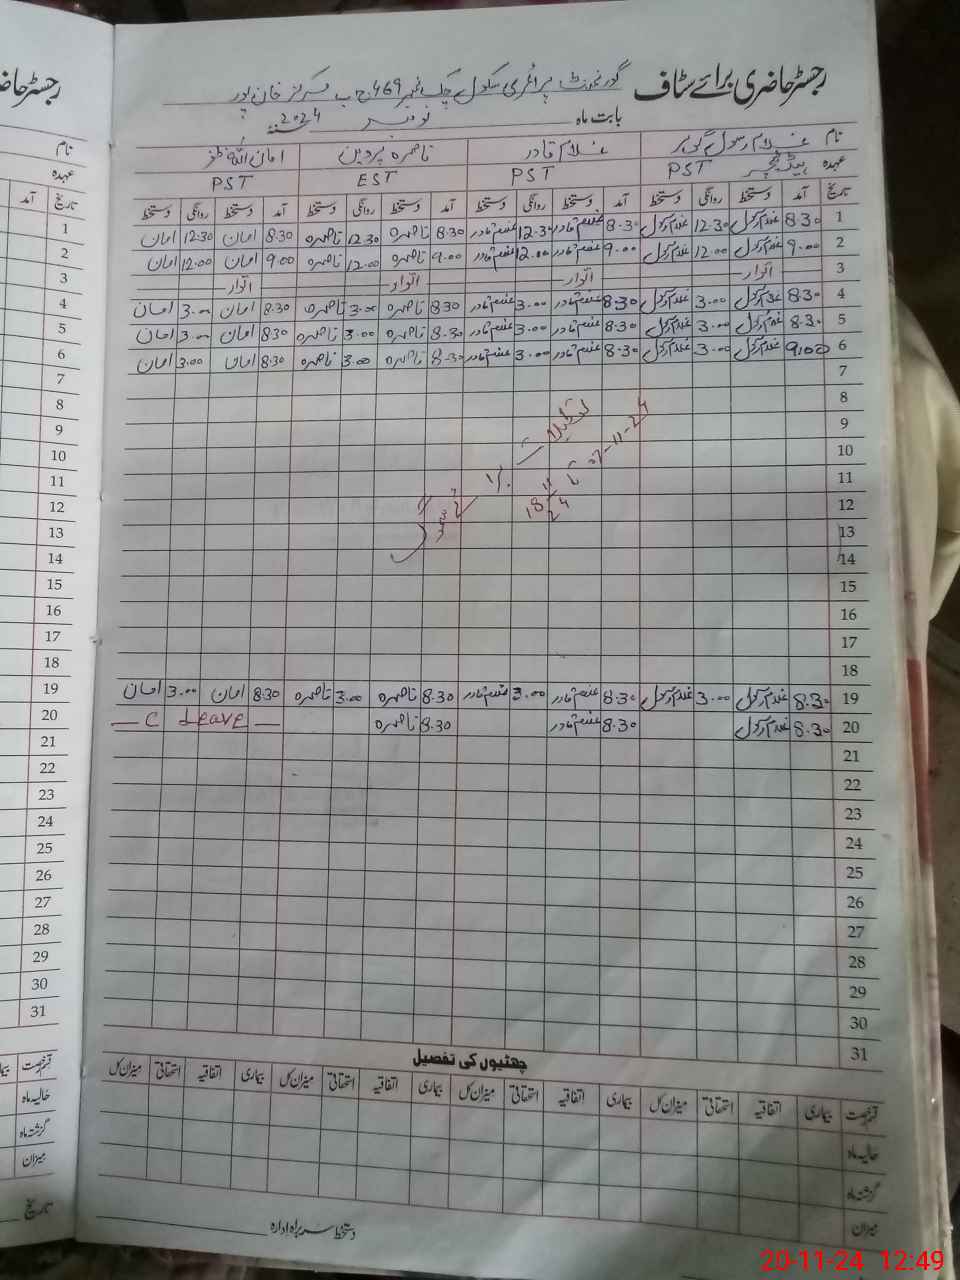 رجسٹر حاضری برائے سٹاف گورنمنٹ پرائمری سکول چک نمبر 469 ج ب مرکز خان پور
بابت ماہ نومبر 2024
نام غلام رسول گوہر غلام قادر ناصرہ پروین امان اللہ ظفر
عہدہ ہیڈ ٹیچر PST PST EST PST
تاریخ آمد دستخط روانگی دستخط آمد دستخط روانگی دستخط آمد دستخط روانگی دستخط آمد دستخط روانگی دستخط
1 8.30 غلام رسول 12.30 غلام رسول 8.30 غلام قادر 12.30 غلام قادر 8.30 ناصرہ 12.30 ناصرہ 8.30 امان 12.30 امان
2 9.00 غلام رسول 12.00 غلام رسول 9.00 غلام قادر 12.00 غلام قادر 9.00 ناصرہ 12.00 ناصرہ 9.00 امان 12.00 امان
3 اتوار اتوار اتوار اتوار
4 8.30 غلام رسول 3.00 غلام رسول 8.30 غلام قادر 3.00 غلام قادر 8.30 ناصرہ 3.00 ناصرہ 8.30 امان 3.00 امان
5 8.30 غلام رسول 3.00 غلام رسول 8.30 غلام قادر 3.00 غلام قادر 8.30 ناصرہ 3.00 ناصرہ 8.30 امان 3.00 امان
6 9.00 غلام رسول 3.00 غلام رسول 8.30 غلام قادر 3.00 غلام قادر 8.30 ناصرہ 3.00 ناصرہ 8.30 امان 3.00 امان
7
8
9
10
11
12
13
14
15
16
17
18
تعطیلات
07-11-24 تا 18 11 24
19 8.30 غلام رسول 3.00 غلام رسول 8.30 غلام قادر 3.00 غلام قادر 8.30 ناصرہ 3.00 ناصرہ 8.30 امان 3.00 امان
20 8.30 غلام رسول 8.30 غلام قادر 8.30 ناصرہ C Leave
21
22
23
24
25
26
27
28
29
30
31
چھٹیوں کی تفصیل
قسم رخصت بیماری اتفاقیہ استحقاقی میزان کل بیماری اتفاقیہ استحقاقی میزان کل بیماری اتفاقیہ استحقاقی میزان کل بیماری اتفاقیہ استحقاقی میزان کل
حالیہ ماہ
گزشتہ ماہ
میزان
دستخط سربراہ ادارہ
رجسٹر حاضری
نام
عہدہ
تاریخ آمد
1
2
3
4
5
6
7
8
9
10
11
12
13
14
15
16
17
18
19
20
21
22
23
24
25
26
27
28
29
30
31
قسم رخصت
حالیہ ماہ
گزشتہ ماہ
میزان
تاریخ
20-11-24 12:49